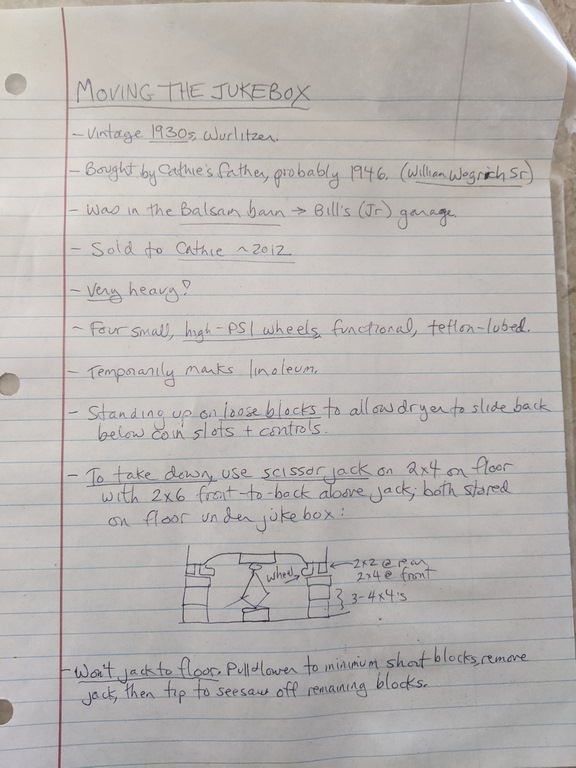 MOVING THE JUKEBOX
- Vintage 1930s Wurlitzer.
- Bought by Cathie's father, probably 1946. (William Wegrich Sr)
- Was in the Balsam barn → Bill's (Jr) garage.
- Sold to Cathie ~2012
- Very heavy!
- Four small, high-PSI wheels, functional, teflon-lubed.
- Temporarily marks linoleum.
- Standing up on loose blocks to allow dryer to slide back
below coin slots + controls.
- To take down, use scissor jack on 2x4 on floor
with 2x6 front-to-back above jack; both stored
on floor under jukebox:
wheel
2x2 @ rear
2x4 @ front
3-4x4's
- Won't jack to floor. Pull + lower to minimum short blocks, remove
jack, then tip to seesaw off remaining blocks.